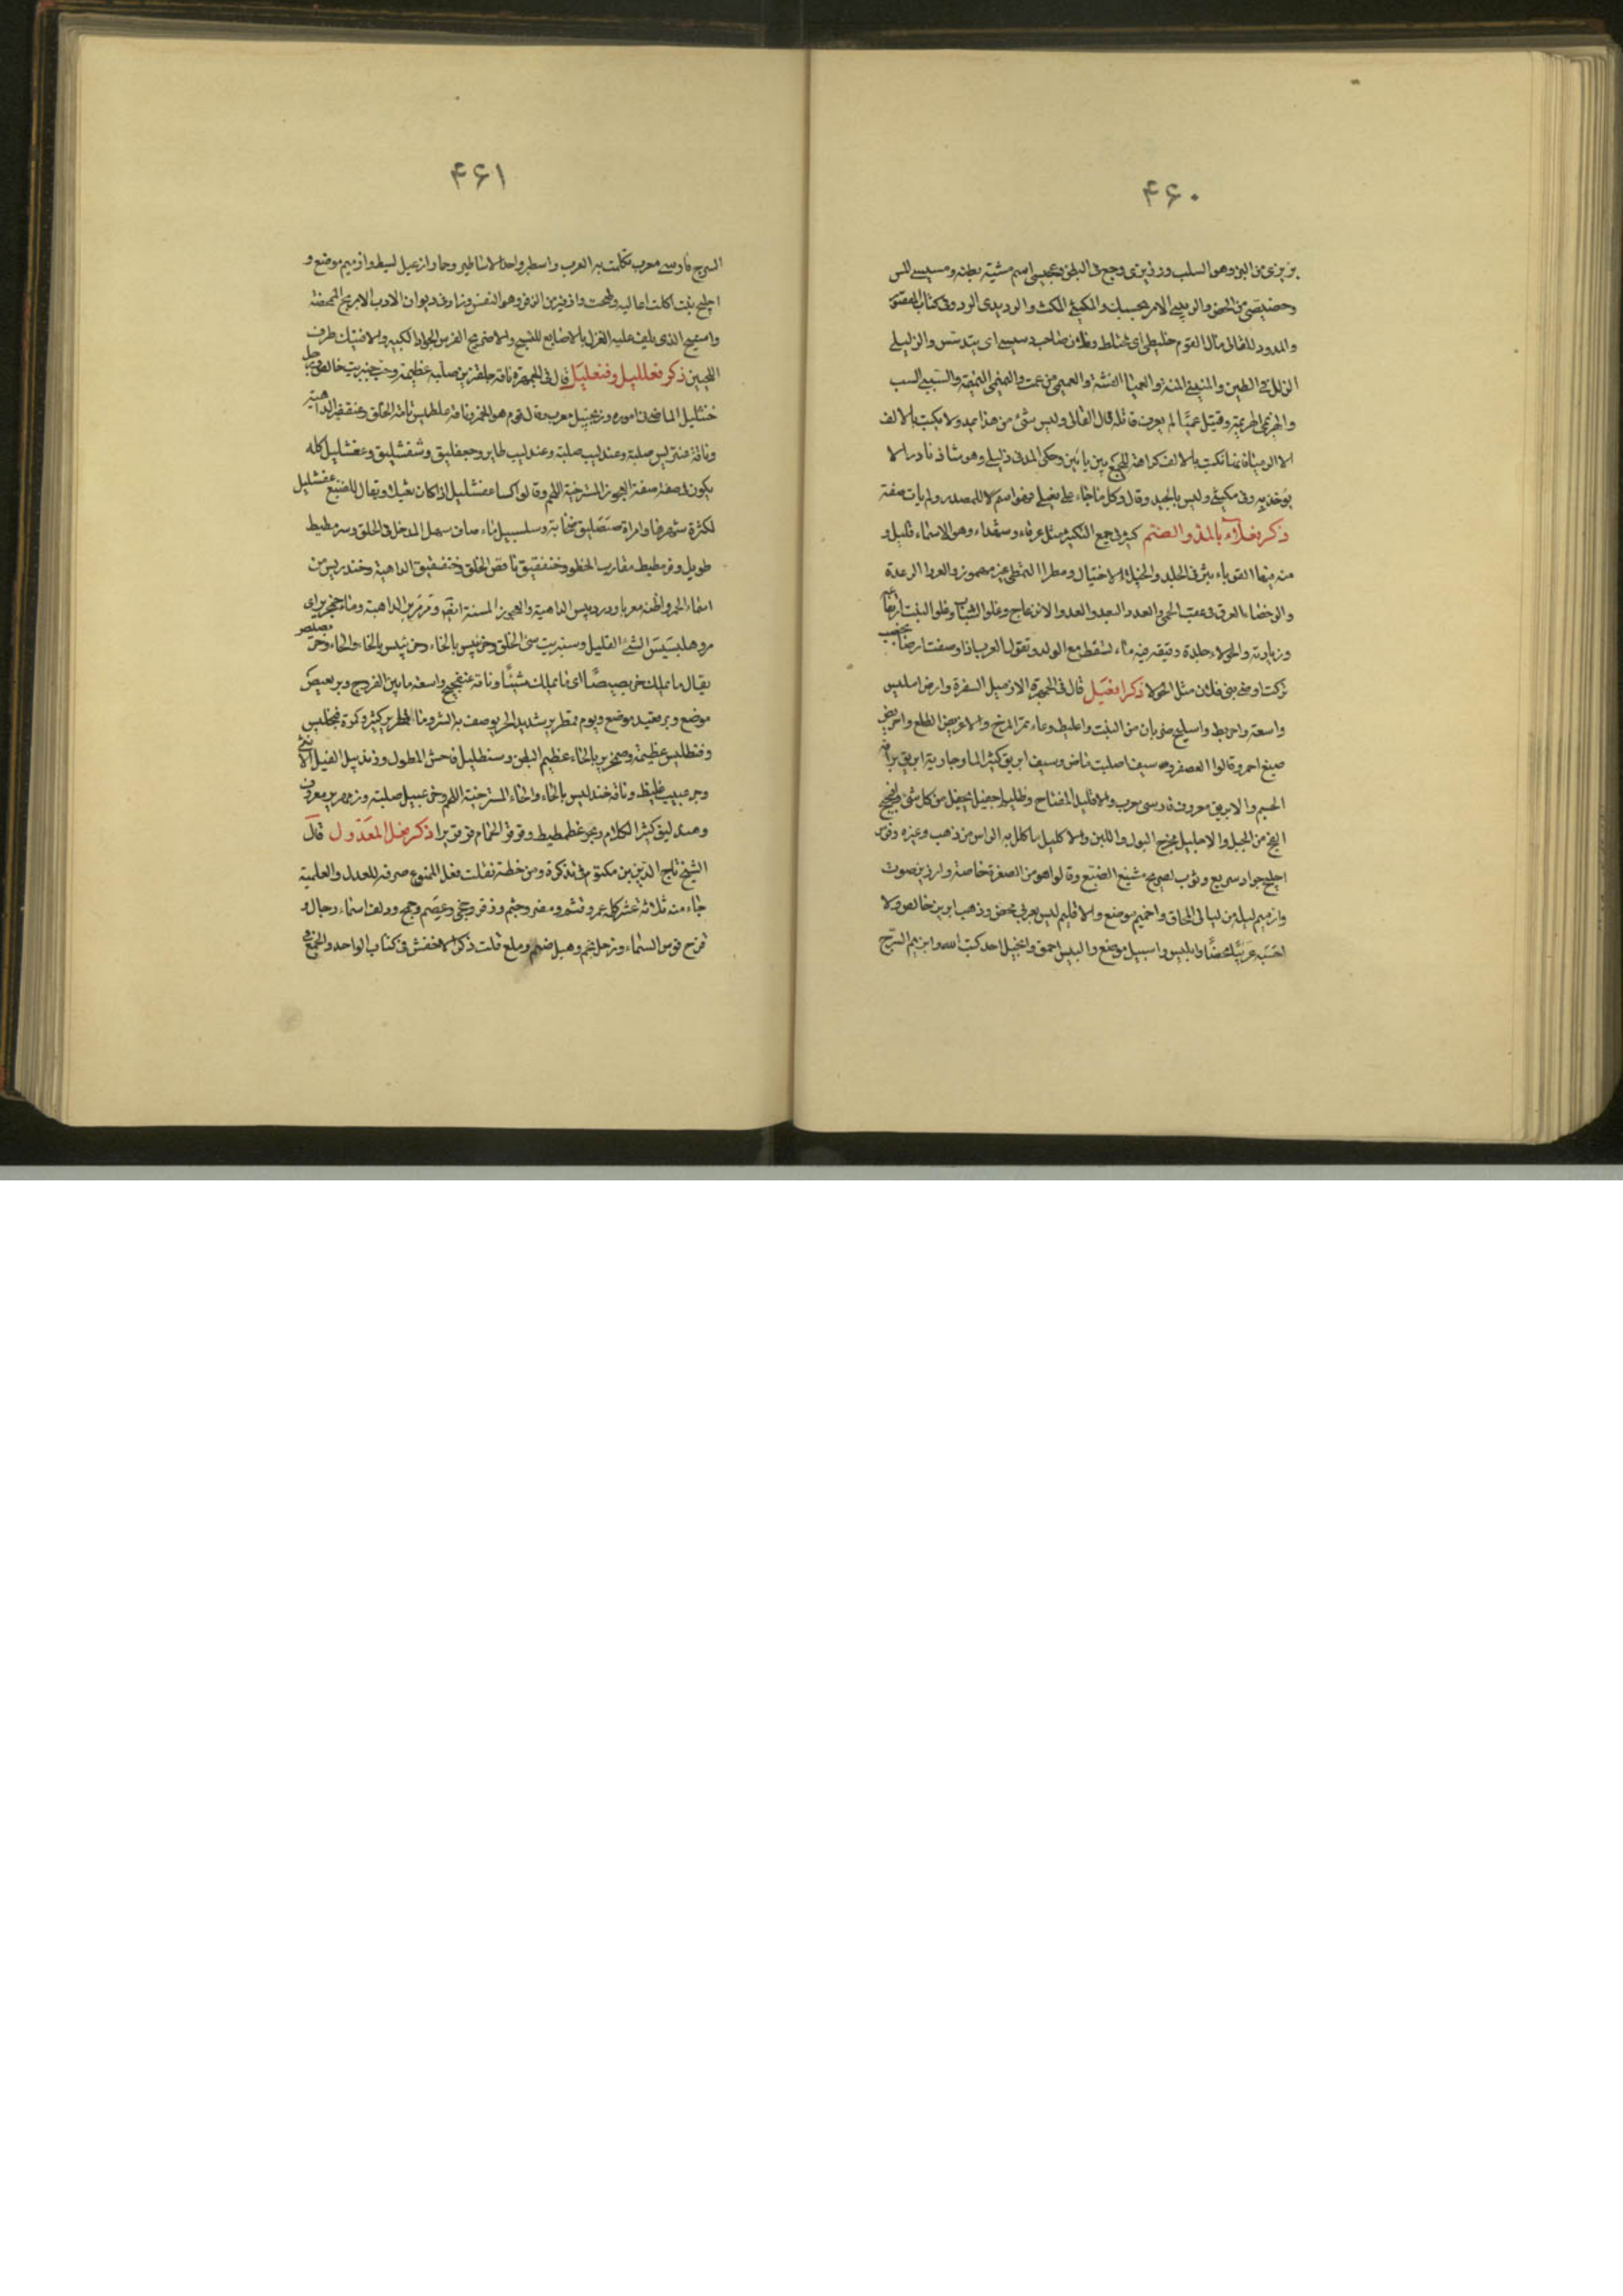 ۴۶۰
بزيزى من البز وهو السلب ورذيزى وجع فى البطن وعجيسى اسم مشيته بطنه ومسيسى المس
وحضيضى من الحض والربيثى الامر يحبسك والمكيثى المكث والرديدى الرد وفى كتاب المقصور
والممدود للقالى مال القوم خليطى اى مختلط وفلان صاحب دسيسى اى يتدسس والزليلى
الزلل فى الطين والمنينى المنه والغشيشا الغشة والعميمى من عمت والنميمى النميمة والسبيبى السب
والهزيمى الهزيمة وقتيل عميا لم يعرف قاتله قال القالى وليس شئ من هذا يمد ولا يكتب بالالف
الا الرميا فانها تكتب بالالف كراهة للجمع بين يائين وحكى المد فى زليلى وهو شاذ نادر لا
يوخذ به وفى مكيثى وليس بالجيد وقال وكل ما جاء على فعيلى فهو اسم لا للمصدر ولم يات صفة
ذكر فعلاء بالمد والضم كثير فى جمع التكثير مثل عرفاء وشهداء وهو فى الاسماء قليل و
منه فيها القوباء بثر فى الجلد والخيلاء الاختيال ومطرا التمطى غير مهموز والعروا الرعدة
والرحضاء العرق فى عقب الحمى والعدواء البعد والعدوا الانزعاج وغلوا الشباب وغلوا النبت ارتفاعه
وزيادته والحولاء جلدة رقيقه فيها ماء تسقط مع الولد وتقول العرب اذا وصفت ارضا بخصب
تركت ارض بنى فلان مثل الحولا ذكر افعيل قال فى الجمهرة الازميل الشفرة وارض امليس
واسعة واحريط واسليح ضربان من النبت واعليط وعاء ثمر المرخ والاغريض الطلع واحريض
صبغ احمر وقالوا العصفر وسيف اصليت ماض وسيف ابريق كثير الما وجارية ابريق براقة
الجسم والابريق معروف فارسى معرب والاقليد المفتاح وظليم اجفيل يجفل من كل شئ واخريج
اليخ من الجبل والاحليل مخرج البول واللبن والاكليل ما كلل به الراس من ذهب وغيره وفرس
اجليح جواد سريع وثوب اضريج مشبع الصبغ وقالوا هو من الصفرة خاصة وارزيز صوت
وازميم ليلة من ليالى المحاق واخميم موضع والاقليم ليس بعربى محض وذهب ابريز خالص ولا
احسبه عربيا محضا وابليس واسبيل موضع والبليس احمق وانجيل احد كتب الله وابزيم السرج
۴۶۱
السرج فارسى معرب تكلمت به العرب واسطير واحد الاساطير وحمار ازعيل نشيط وازميم موضع و
اجليح نبت اكلت اعاليه واذفير من الزفر وهو النفس وزاد فى ديوان الادب الابريج الممخضة
واستيج الذى يلف عليه الغزل بالاصابع للنسج والاضريج الفرس الجواد الكبير والافنيك طرف
اللحيين ذكر فعلليل وفنعليل قال فى الجمهرة ناقة علطميس صلبة عظيمة وحب حنبريت خالص ورجل
خنشليل الماضى فى اموره وزنجبيل معرب وقال قوم هو الخمر وناقة علطميس تامة الخلق وعنقفير الداهية
وناقة عنتريس صلبة وعندليب طاير وجعفليق وشفشليق وعفشليل كله
يكون صفة العجوز المسترخية اللحم وقالوا كسا عفشليل اذا كان ثقيلا ويقال للضبع عفشليل
لكثرة شعرها وامراة صهصليق صخابة وسلسبيل ماء صاف سهل المدخل فى الحلق وسرمطيط
طويل وقرمطيط متقارب الخطو وخنفقيق ناقص الخلق وخنفقيق الداهية وخندريس من
اسماء الخمر واظنه معربا ودردبيس الداهية والعجوز المسنة ايضا ومرمريس الداهية وماء خمجرير اى
مر وهلبسيس الشئ القليل وسنبريت سئ الخلق وخربسيس بالخاء وحربسيس بالحاء والخاء وخربصيص
يقال ما يملك خربصيصا اى ما يملك شيئا وناقة عنفجيج واسعة ما بين الفروج وبربعيص
موضع وبرقعيد موضع ويوم قمطرير شديد الحر يوصف به الشر وماء خمطرير كثير وكمرة فنجليس
وفنطليس عظيمة وصمخرير بالخاء عظيم البطن وسنطليل فاحش الطول وزندبيل الفيل الانثى
وناقة خندليس بالحاء والخاء المسترخية اللحم وخزعبيل صلبة وزمهرير معروف
وهندليق كثير الكلام وبحر غطمطيط وقرقر الحمام قرقريرا ذكر فعل المعدول قال
الشيخ تاج الدين بن مكتوم فى تذكرة ومن خطه نقلت فعل الممنوع صرفه للعدل والعلمية
جاء منه ثلاثة عشر كلمة عمر وقثم ومضر وجشم وزفر وجحى وعصم وجمح ودلف اسماء رجال و
قزح قوس السماء وزحل نجم وهبل صنم وبلع قلت ذكر الاخفش فى كتاب الواحد والجمع